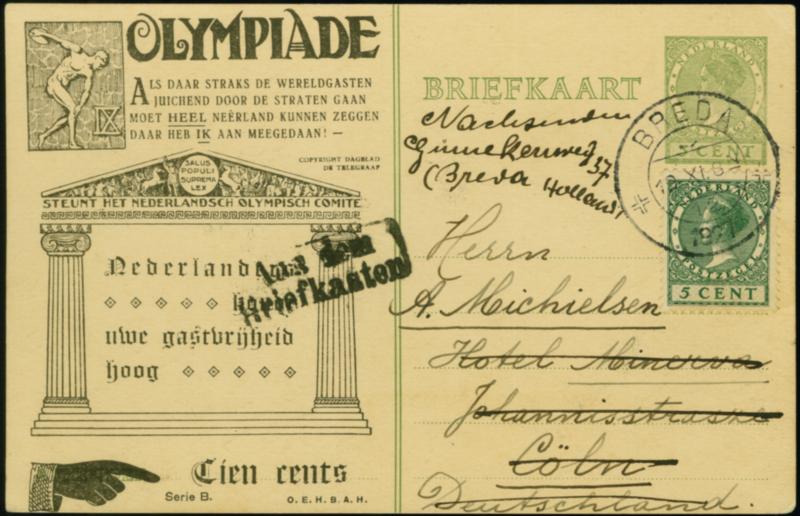 OLYMPIADE
ALS DAAR STRAKS DE WERELDGASTEN
JUICHEND DOOR DE STRATEN GAAN
MOET HEEL NEÊRLAND KUNNEN ZEGGEN
DAAR HEB IK AAN MEEGEDAAN! —
IX
COPYRIGHT DAGBLAD
DE TELEGRAAF
SALUS
POPULI
SUPREMA
LEX
STEUNT HET NEDERLANDSCH OLYMPISCH COMITÉ
Nederland
uwe gastvrijheid
hoog
Aus dem
Briefkasten
Tien cents
Serie B.
O.E.H.B.A.H.
BRIEFKAART
NEDERLAND
5 CENT
BREDA
192
NEDERLAND
POSTZEGEL
5 CENT
Nachsenden
Ginnekenweg 37
Breda Holland
Herrn
A. Michielsen
Hotel Minerva
Johannisstrasse
Cöln
Deutschland.